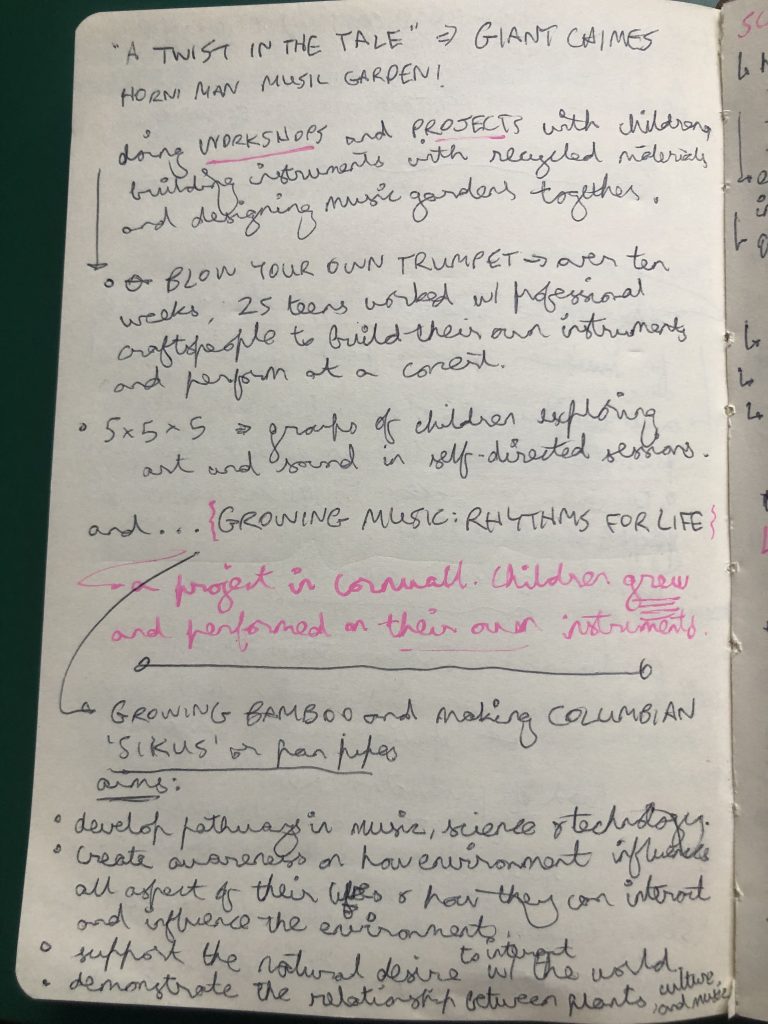 "A TWIST IN THE TALE" ⇒ GIANT CHIMES
HORNIMAN MUSIC GARDEN!
doing WORKSHOPS and PROJECTS with children,
building instruments with recycled materials
and designing music gardens together.
• BLOW YOUR OWN TRUMPET → over ten
weeks, 25 teens worked w/ professional
craftspeople to build their own instruments
and perform at a concert.
• 5×5×5 ⇒ groups of children exploring
art and sound in self-directed sessions.
and... {GROWING MUSIC: RHYTHMS FOR LIFE}
→ a project in Cornwall. Children grew
and performed on their own instruments.
→ GROWING BAMBOO and making COLUMBIAN
'SIKUS' or pan pipes
aims:
• develop pathways in music, science & technology.
• create awareness on how environment influences
all aspect of their lives & how they can interact
and influence the environment.
• support the natural desire to interact w/ the world
• demonstrate the relationship between plants, culture
and music
SU